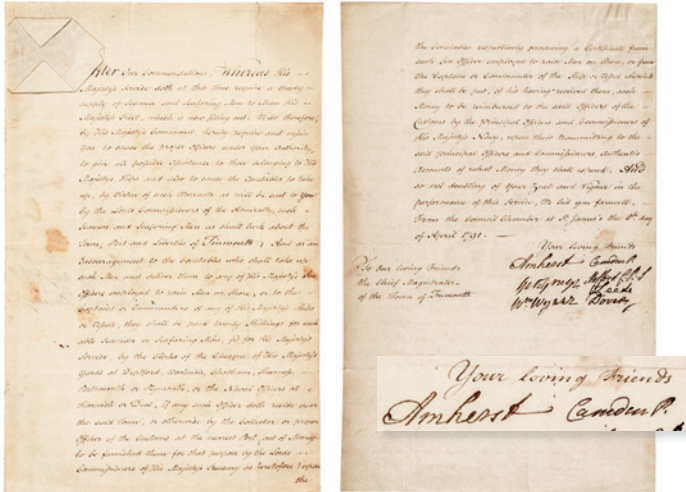 After Our Commendations, Whereas His
Majesty's Service doth at this time require a speedy
supply of Seamen and Seafaring Men to Man His
Majesty's Fleet, which is now fitting out; We do therefore
by His Majesty's Command, hereby require and enjoin
You to cause the proper Officers under Your Authority,
to give all possible Assistance to those belonging to His
Majesty's Ships and also to cause the Constables to take
up, by Virtue of such Warrants as will be sent to You
by the Lords Commissioners of the Admiralty, such
Seamen and Seafaring Men as shall lurk about the
Town, Port and Liberties of Tinmouth; And as an
Encouragement to the Constables who shall take up
such Men and deliver them to any of His Majesty's Sea
Officers employed to raise Men on Shore, or to the
Captains or Commanders of any of His Majesty's Ships
or Vessels, they shall be paid twenty Shillings for each
able Seaman or Seafaring Man, fit for His Majesty's
Service, by the Clerks of the Cheque of His Majesty's
Yards at Deptford, Woolwich, Chatham, Sheerness,
Portsmouth or Plymouth, or the Naval Officers at
Harwich or Deal, if any such Officer doth reside near
the said Town, or otherwise by the Collector or proper
Officer of the Customs at the nearest Port (out of Money
to be furnished them for that purpose by the Lords
Commissioners of His Majesty's Treasury as heretofore) upon
the
the Constables respectively producing a Certificate from
such Sea Officer employed to raise Men on Shore, or from
the Captain or Commander of the Ship or Vessel aboard
they shall be put, of his having received them, such
Money to be reimbursed to the said Officers of the
Customs by the principal Officers and Commissioners of
His Majesty's Navy, upon their transmitting to the
said principal Officers and Commissioners, Authentic
Accounts of what Money they shall expend. And
so not doubting of Your Zeal and Vigour in the
performance of this Service, We bid you farewell.
From the Council Chamber at St. James's the 6th day
of April 1791.
Your loving Friends
Amherst Camden P.
Leeds
Wm Wynne Dover
To Our loving Friends
the Chief Magistrate
of the Town of Tinmouth
Your loving Friends
Amherst Camden P.